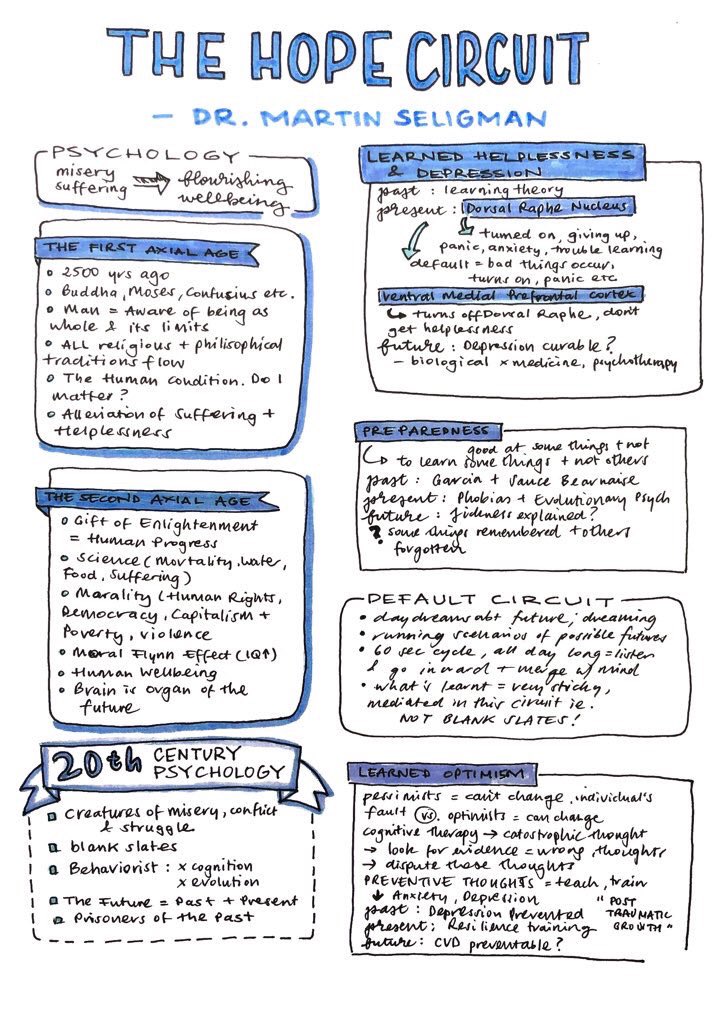 THE HOPE CIRCUIT
- DR. MARTIN SELIGMAN
PSYCHOLOGY
misery
suffering
flourishing
wellbeing
THE FIRST AXIAL AGE
2500 yrs ago
Buddha, Moses, Confusius etc.
Man = Aware of being as
whole & its limits
ALL religious + philisophical
traditions flow
The Human condition. Do I
matter?
Alleviation of Suffering +
Helplessness
THE SECOND AXIAL AGE
Gift of Enlightenment
= Human Progress
Science (Mortality, Water,
Food, Suffering)
Morality (Human Rights,
Democracy, Capitalism +
Poverty, violence
Moral Flynn Effect (IQ↑)
Human Wellbeing
Brain is organ of the
future
20th CENTURY
PSYCHOLOGY
Creatures of misery, conflict
& struggle
blank slates
Behaviorist : x cognition
x evolution
The Future = Past + Present
Prisoners of the Past
LEARNED HELPLESSNESS
& DEPRESSION
past : learning theory
present : Dorsal Raphe Nucleus
turned on, giving up,
panic, anxiety, trouble learning
default = bad things occur,
turns on, panic etc
Ventral Medial Prefrontal cortex
↳ turns off Dorsal Raphe, don't
get helplessness
future : Depression curable?
- biological x medicine, psychotherapy
PREPAREDNESS
good at some things + not
↳ to learn some things + not others
past : Garcia + Sauce Bearnaise
present : Phobias + Evolutionary Psych
future : explained?
? some things remembered + others
forgotten
DEFAULT CIRCUIT
• daydreams abt future; dreaming
• running scenarios of possible futures
• 60 sec cycle, all day long = listen
& go inward + merge w/ mind
• what's learnt = very sticky,
mediated in this circuit ie.
NOT BLANK SLATES!
LEARNED OPTIMISM
pessimists = can't change, individual's
fault vs. optimists = can change
cognitive therapy → catostrophic thought
→ look for evidence = wrong thoughts
→ dispute these thoughts
PREVENTIVE THOUGHTS = teach, train
↓ Anxiety, Depression
past : Depression Prevented
present : Resilience training
future : CVD preventable?
"POST
TRAUMATIC
GROWTH"